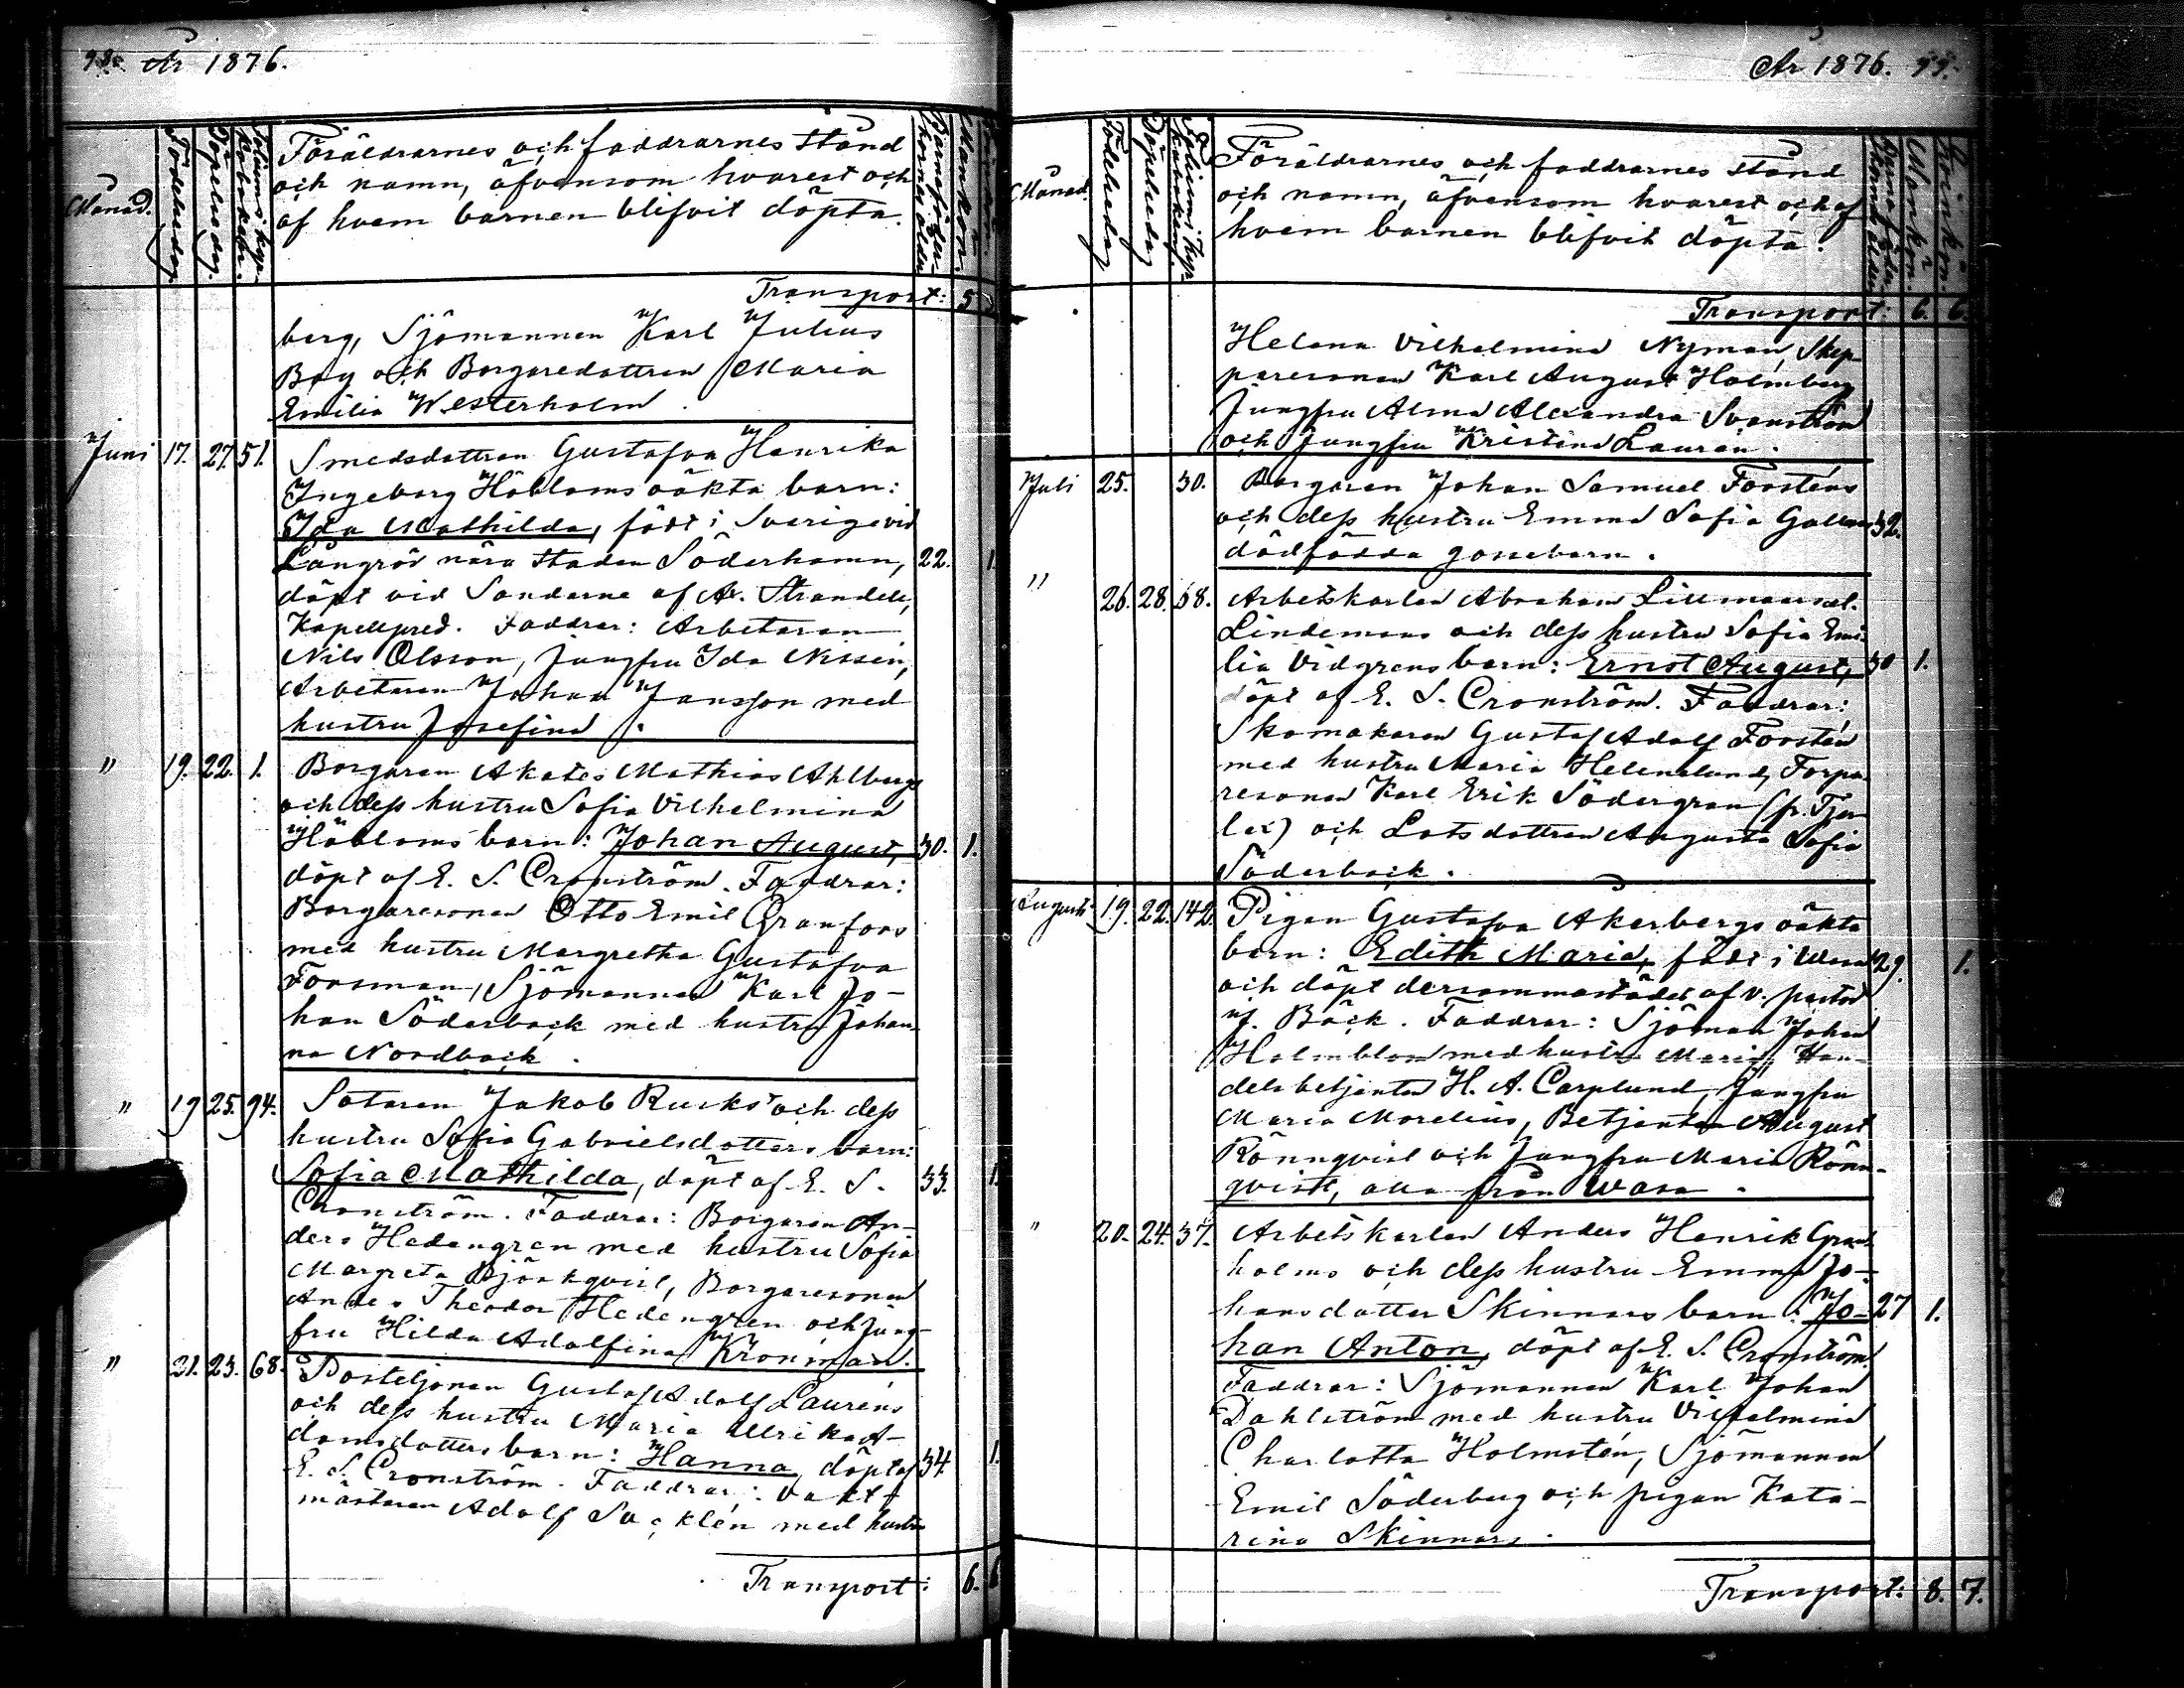 98. År 1876.
Månad.
Födelsedag.
Döpelsedag.
Föräldrarnes och faddrarnes stånd
och namn, äfvensom hvarest och
af hvem barnen blifvit döpta.
Mankön.
Transport: 5
berg, Sjömannen Karl Julius
Boy och Borgaredottren Maria
Emilia Westerholm.
Juni 17. 27. 51. Smedsdottren Gustafva Henrika
Ingeborg Höbloms oäkta barn:
Ida Mathilda, född i Sverige vid
Långrör nära staden Söderhamn, 22. 1.
döpt vid Sandarne af A. Strandell,
Kapellpred. Faddrar: Arbetaren
Nils Olsson, jungfru Ida Nissén,
Arbetaren Johan Jansson med
hustru Josefina J.
" 19. 22. 1. Borgaren Akates Mathias Ahlbergs
och dess hustru Sofia Vilhelmina
Höbloms barn: Johan August, 30. 1.
döpt af E. S. Cronström. Faddrar:
Borgaresonen Otto Emil Granfors
med hustru Margretha Gustafva
Forsman, Sjömannen Karl Jo-
han Söderback med hustru Johan-
na Nordback.
" 19 25. 94. Sotaren Jakob Rusks och dess
hustru Sofia Gabrielsdotters barn:
Sofia Mathilda, döpt af E. S. 33. 1.
Cronström. Faddrar: Borgaren An-
ders Hedengren med hustru Sofia
Margreta Björkqvist, Borgaresonen
Anders Theodor Hedengren och jung-
fru Hilda Adolfina Kronman.
" 21. 23. 68. Posteljonen Gustaf Adolf Lauréns
och dess hustru Maria Ulrika A-
damsdotters barn: Hanna, döpt af 34. 1.
E. S. Cronström. Faddrar: Vakt-
mästaren Adolf Sucklén med hustru
Transport: 6. 6
År 1876. 99.
Månad.
Födelsedag
Döpelsedag
Föräldrarnes och faddrarnes stånd
och namn, äfvensom hvarest och af
hvem barnen blifvit döpta.
Mankön.
Qvinkön.
Transport: 6. 6.
Helena Vilhelmina Nyman, Skep-
paresonen Karl August Holmberg
Jungfru Alma Alexandra Svanström
och Jungfru Kristina Laurén.
Juli 25. 30. Borgaren Johan Samuel Forsténs
och dess hustru Emma Sofia 32.
dödfödda gossebarn.
" 26. 28. 58. Arbetskarlen Abraham Lillmans
Lindemans och dess hustru Sofia Emi-
lia Vidgrens barn: Ernst August, 30 1.
döpt af E. S. Cronström. Faddrar:
Skomakaren Gustaf Adolf Forstén
med hustru Maria Helenelund, Torpa-
resonen Karl Erik Södergran (fr. Tjer-
lax) och Lotsdottren Augusta Sofia
Söderback.
Augusti 19. 22. 142. Pigan Gustafva Åkerbergs oäkta
barn: Edith Maria, född i Wasa 29. 1.
och döpt dersammastädes af v. pastor
J. Bäck. Faddrar: Sjöman Johan
Holmblom med hustru Maria, Han-
delsbetjenten H. A. Carplund, Jungfru
Maria Morelius, Betjenten August
Rönnqvist och Jungfru Maria Rönn-
qvist, alla från Wasa.
" 20. 24. 37. Arbetskarlen Anders Henrik Gran-
holms och dess hustru Emma Jo-
hansdotter Skinnars barn: Jo- 27 1.
han Anton, döpt af E. S. Cronström.
Faddrar: Sjömannen Karl Johan
Dahlström med hustru Vilhelmina
Charlotta Holmstén, Sjömannen
Emil Söderberg och pigan Kata-
rina Skinnars.
Transport: 8. 7.